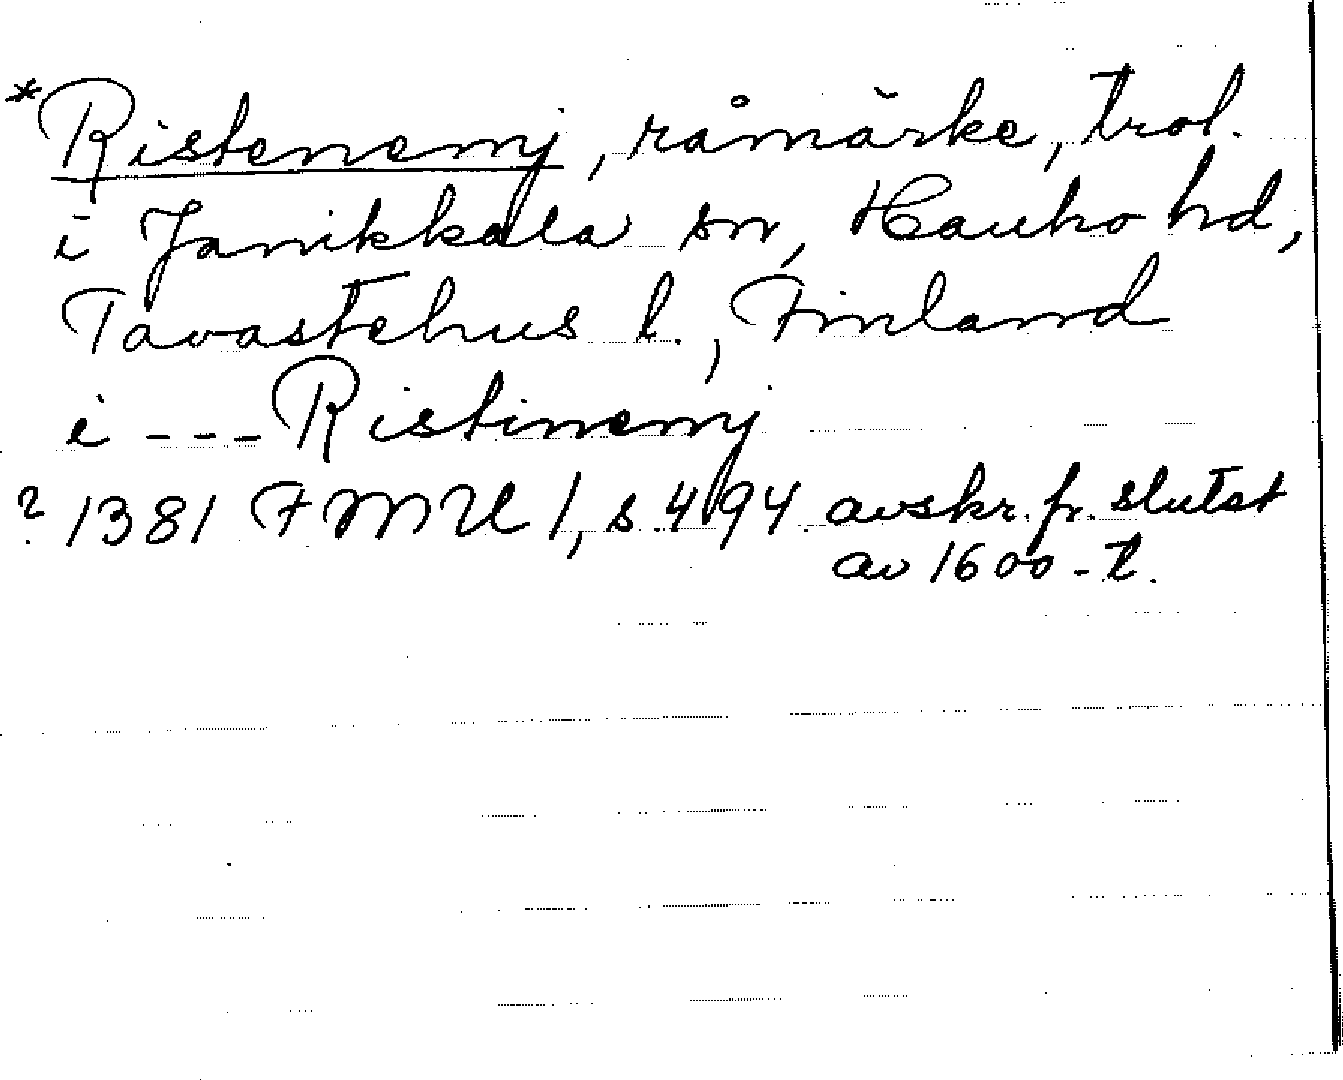 *Ristenemj, råmärke, trol.
i Janikkala sn, Hauho hd,
Tavastehus l., Finland
i --- Ristinemj
? 1381 FMU 1, s 494 avskr. fr. slutet
av 1600-t.